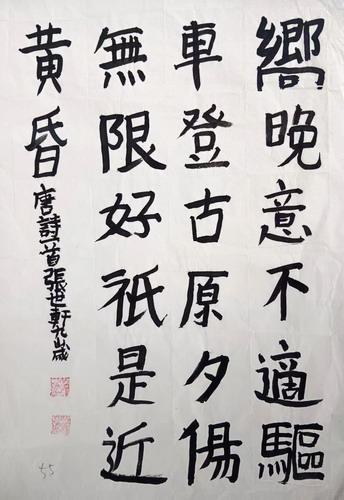 嚮晚意不適驅
車登古原夕傷
無限好祇是近
黄昏
唐詩一首張世軒九歲
55